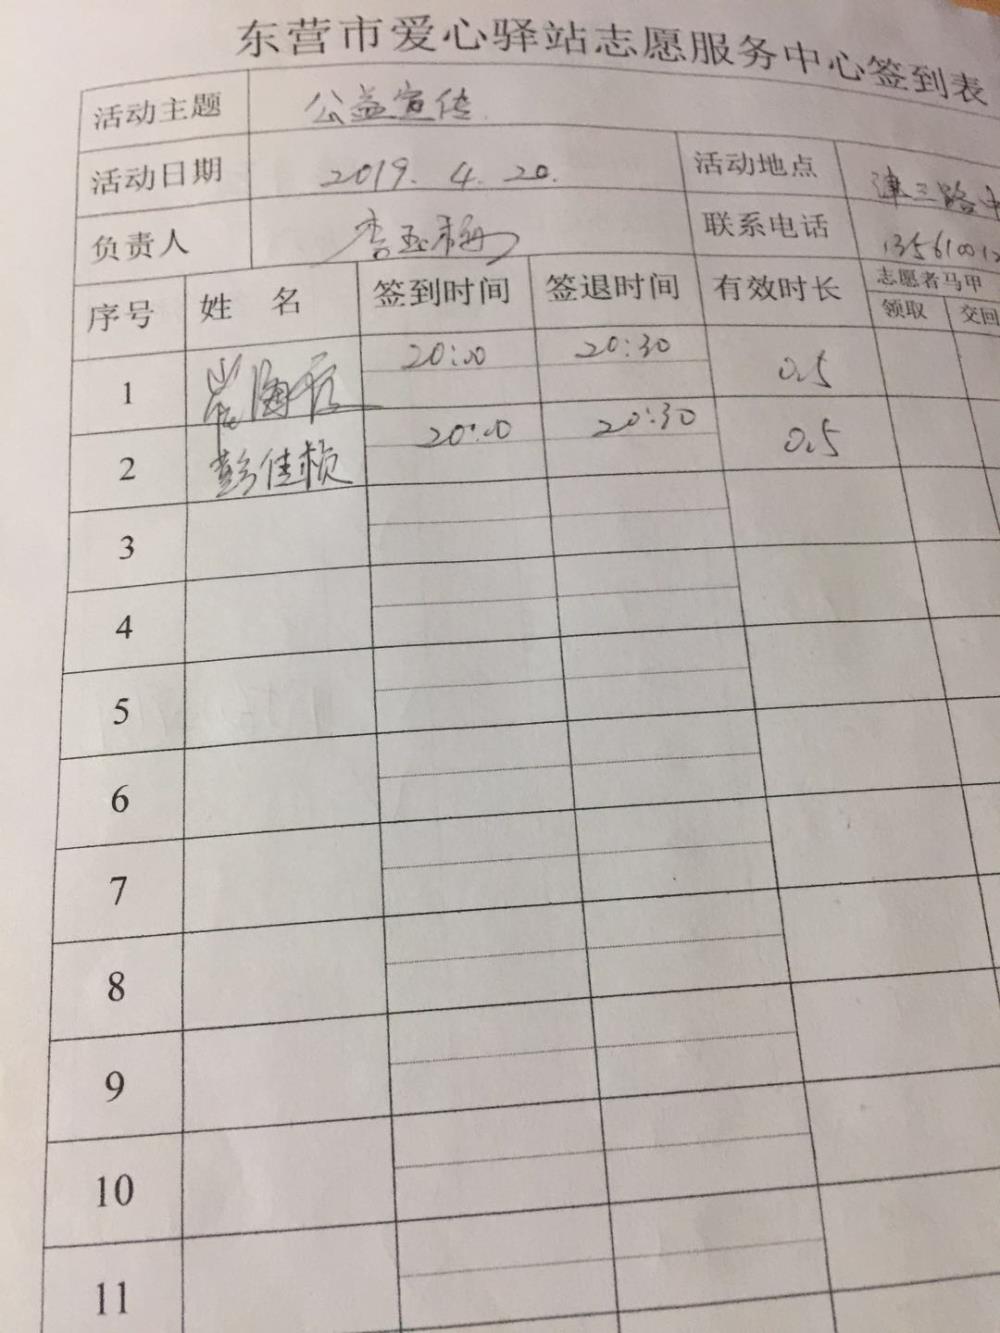 东营市爱心驿站志愿服务中心签到表
活动主题 公益宣传
活动日期 2019.4.20. 活动地点 津三路
负责人 李玉梅 联系电话 13561001
序号 姓 名 签到时间 签退时间 有效时长 志愿者马甲
领取 交回
1 崔海 20:00 20:30 0.5
2 彭佳桢 20:00 20:30 0.5
3
4
5
6
7
8
9
10
11